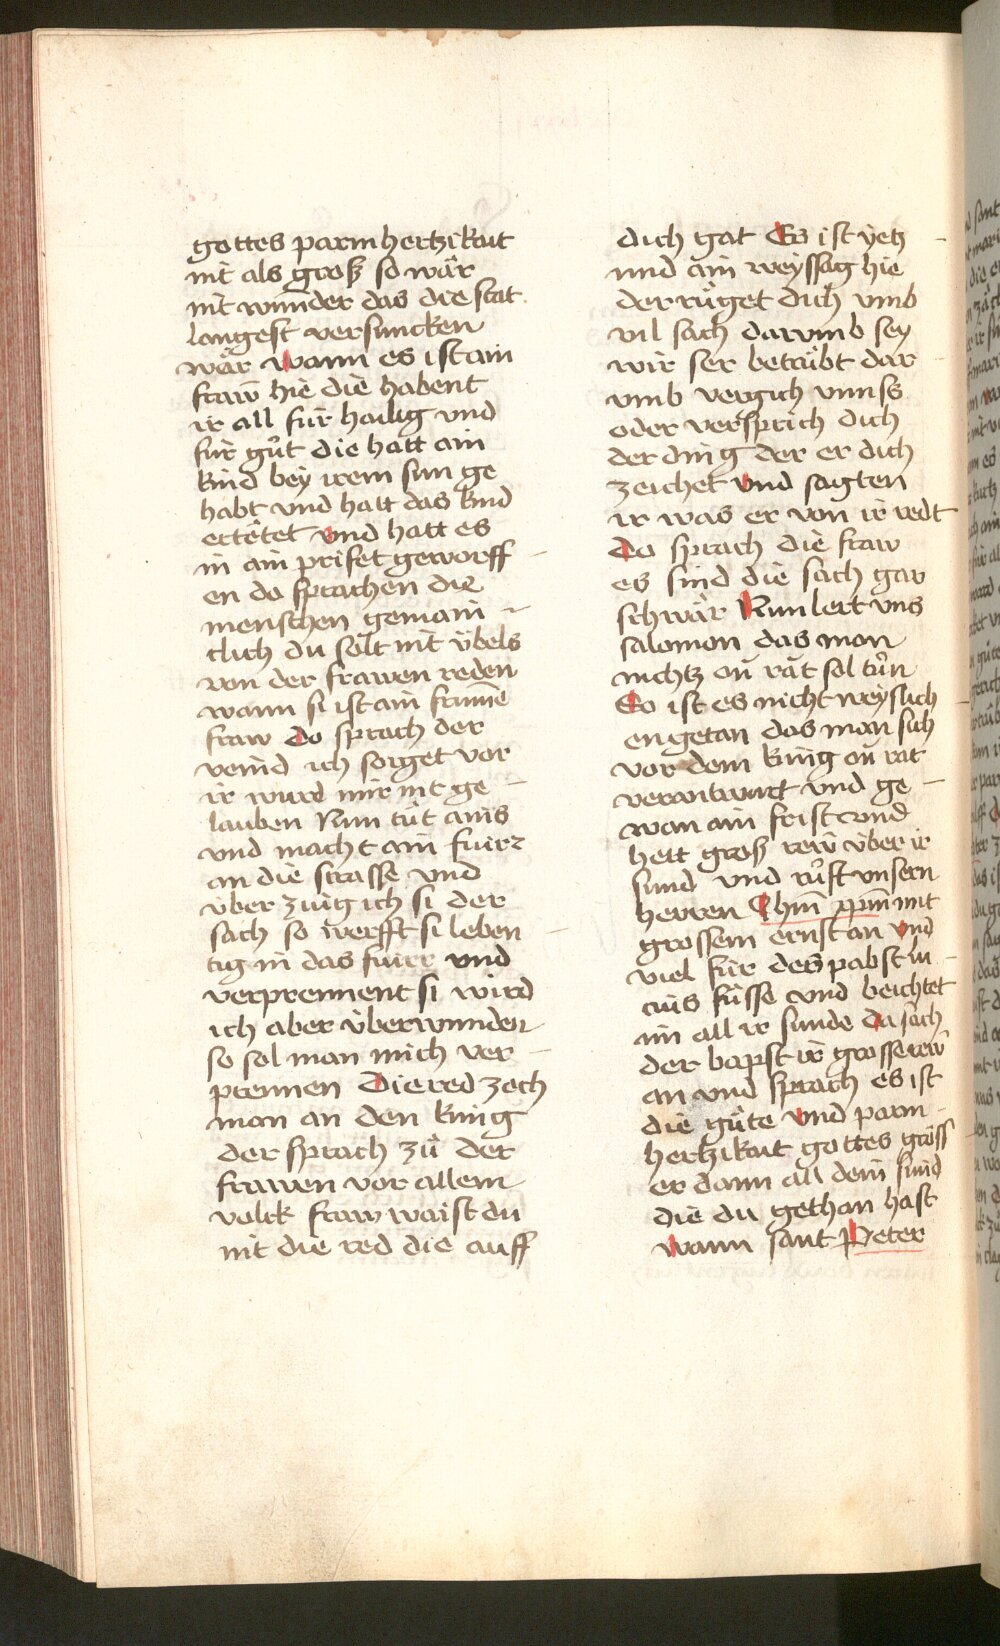 gottes parmhertzikait
nit als groß so wär
nit wunder das die stat
langest versuncken
wär wann es ist ain
fraw̄ hie die habent
ir all für hailig vnd
für gůt die hatt ain
kind bey irem sun ge
habt vnd hatt das kind
ertëtet vnd hatt es
in ain prifet geworff
en do sprachen die
menschen gemain
clich du solt nit übels
von der frawen reden
wann si ist ain frum̄e
fraw Do sprach der
veind ich sorget vor
ir wurd mir nit ge
lauben Nun tůt ains
vnd macht ain fuir
an die strasse vnd
überzüig ich si der
sach so werfft si leben
tig in das fuir vnd
verprennent si wird
ich aber überwunden
so sol man mich ver
prennen Die red zoch
man an den king
der sprach zů der
frawen vor allem
volck fraw waist du
nit die red die auff
dich gat Es ist yetz
vnd ain weyssag hie
der rüget dich vmb
vil sach darvmb sey
wir ser betrübt dar
vmb vergich vnnss
oder versprich dich
der ding der er dich
zeichet vnd sagten
ir was er von ir redt
Do sprach die fraw
es sind die sach gar
schwär Nun lert vns
salomon das man
nichtz on̄ rät sol tůn
So ist es nicht weyslich
en getan das man sich
vor dem king on̄ rat
verantwurt vnd ge
wan ain frist vnd
hett groß rew̄ über ir
sund vnd růft vnsern
herren Ihm̄ xp̄m̄ mit
grossem ernst an vnd
viel für des pabst in
aüs füsse vnd beichtet
im all ir sunde Da sach
der bapst ir grosse rew̄
an vnd sprach es ist
die güte vnd parm
hertzikait gottes gröss
er dann all dein sünd
die du gethan hast
wann sant Peter